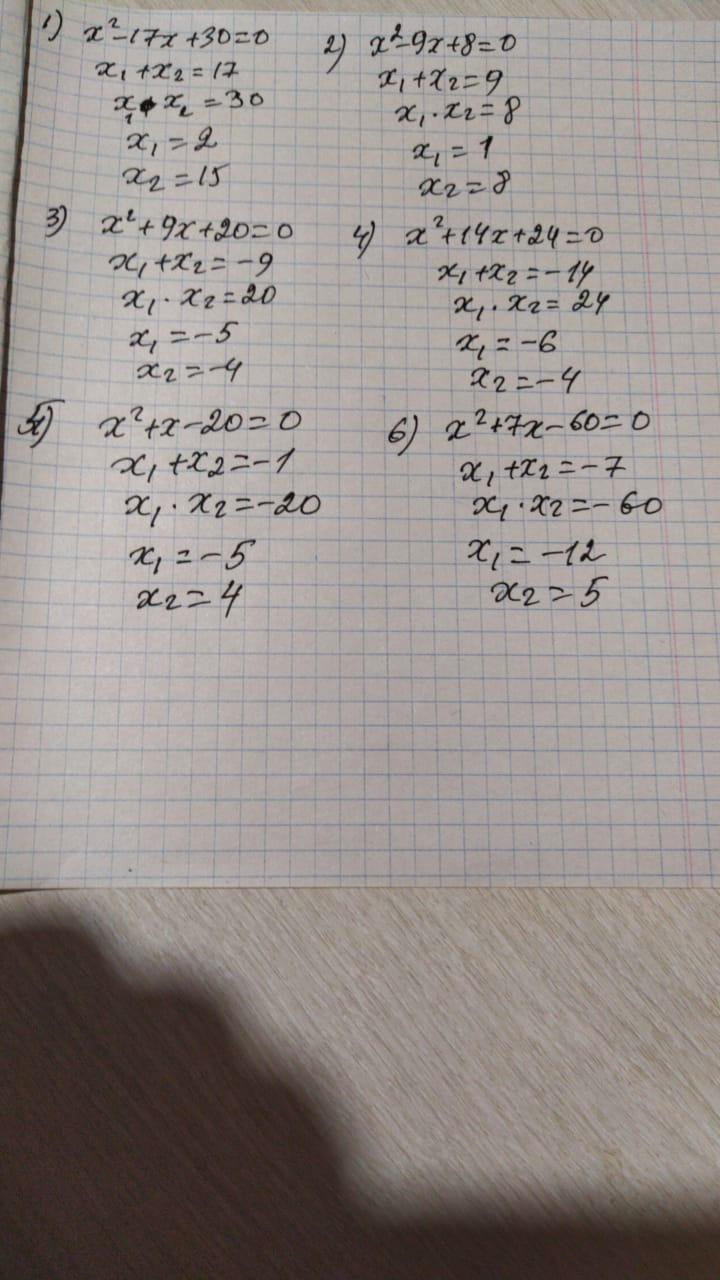 1) x²-17x+30=0
x₁+x₂=17
x₁·x₂=30
x₁=2
x₂=15
2) x²-9x+8=0
x₁+x₂=9
x₁·x₂=8
x₁=1
x₂=8
3) x²+9x+20=0
x₁+x₂=-9
x₁·x₂=20
x₁=-5
x₂=-4
4) x²+14x+24=0
x₁+x₂=-14
x₁·x₂=24
x₁=-6
x₂=-4
5) x²+x-20=0
x₁+x₂=-1
x₁·x₂=-20
x₁=-5
x₂=4
6) x²+7x-60=0
x₁+x₂=-7
x₁·x₂=-60
x₁=-12
x₂=5